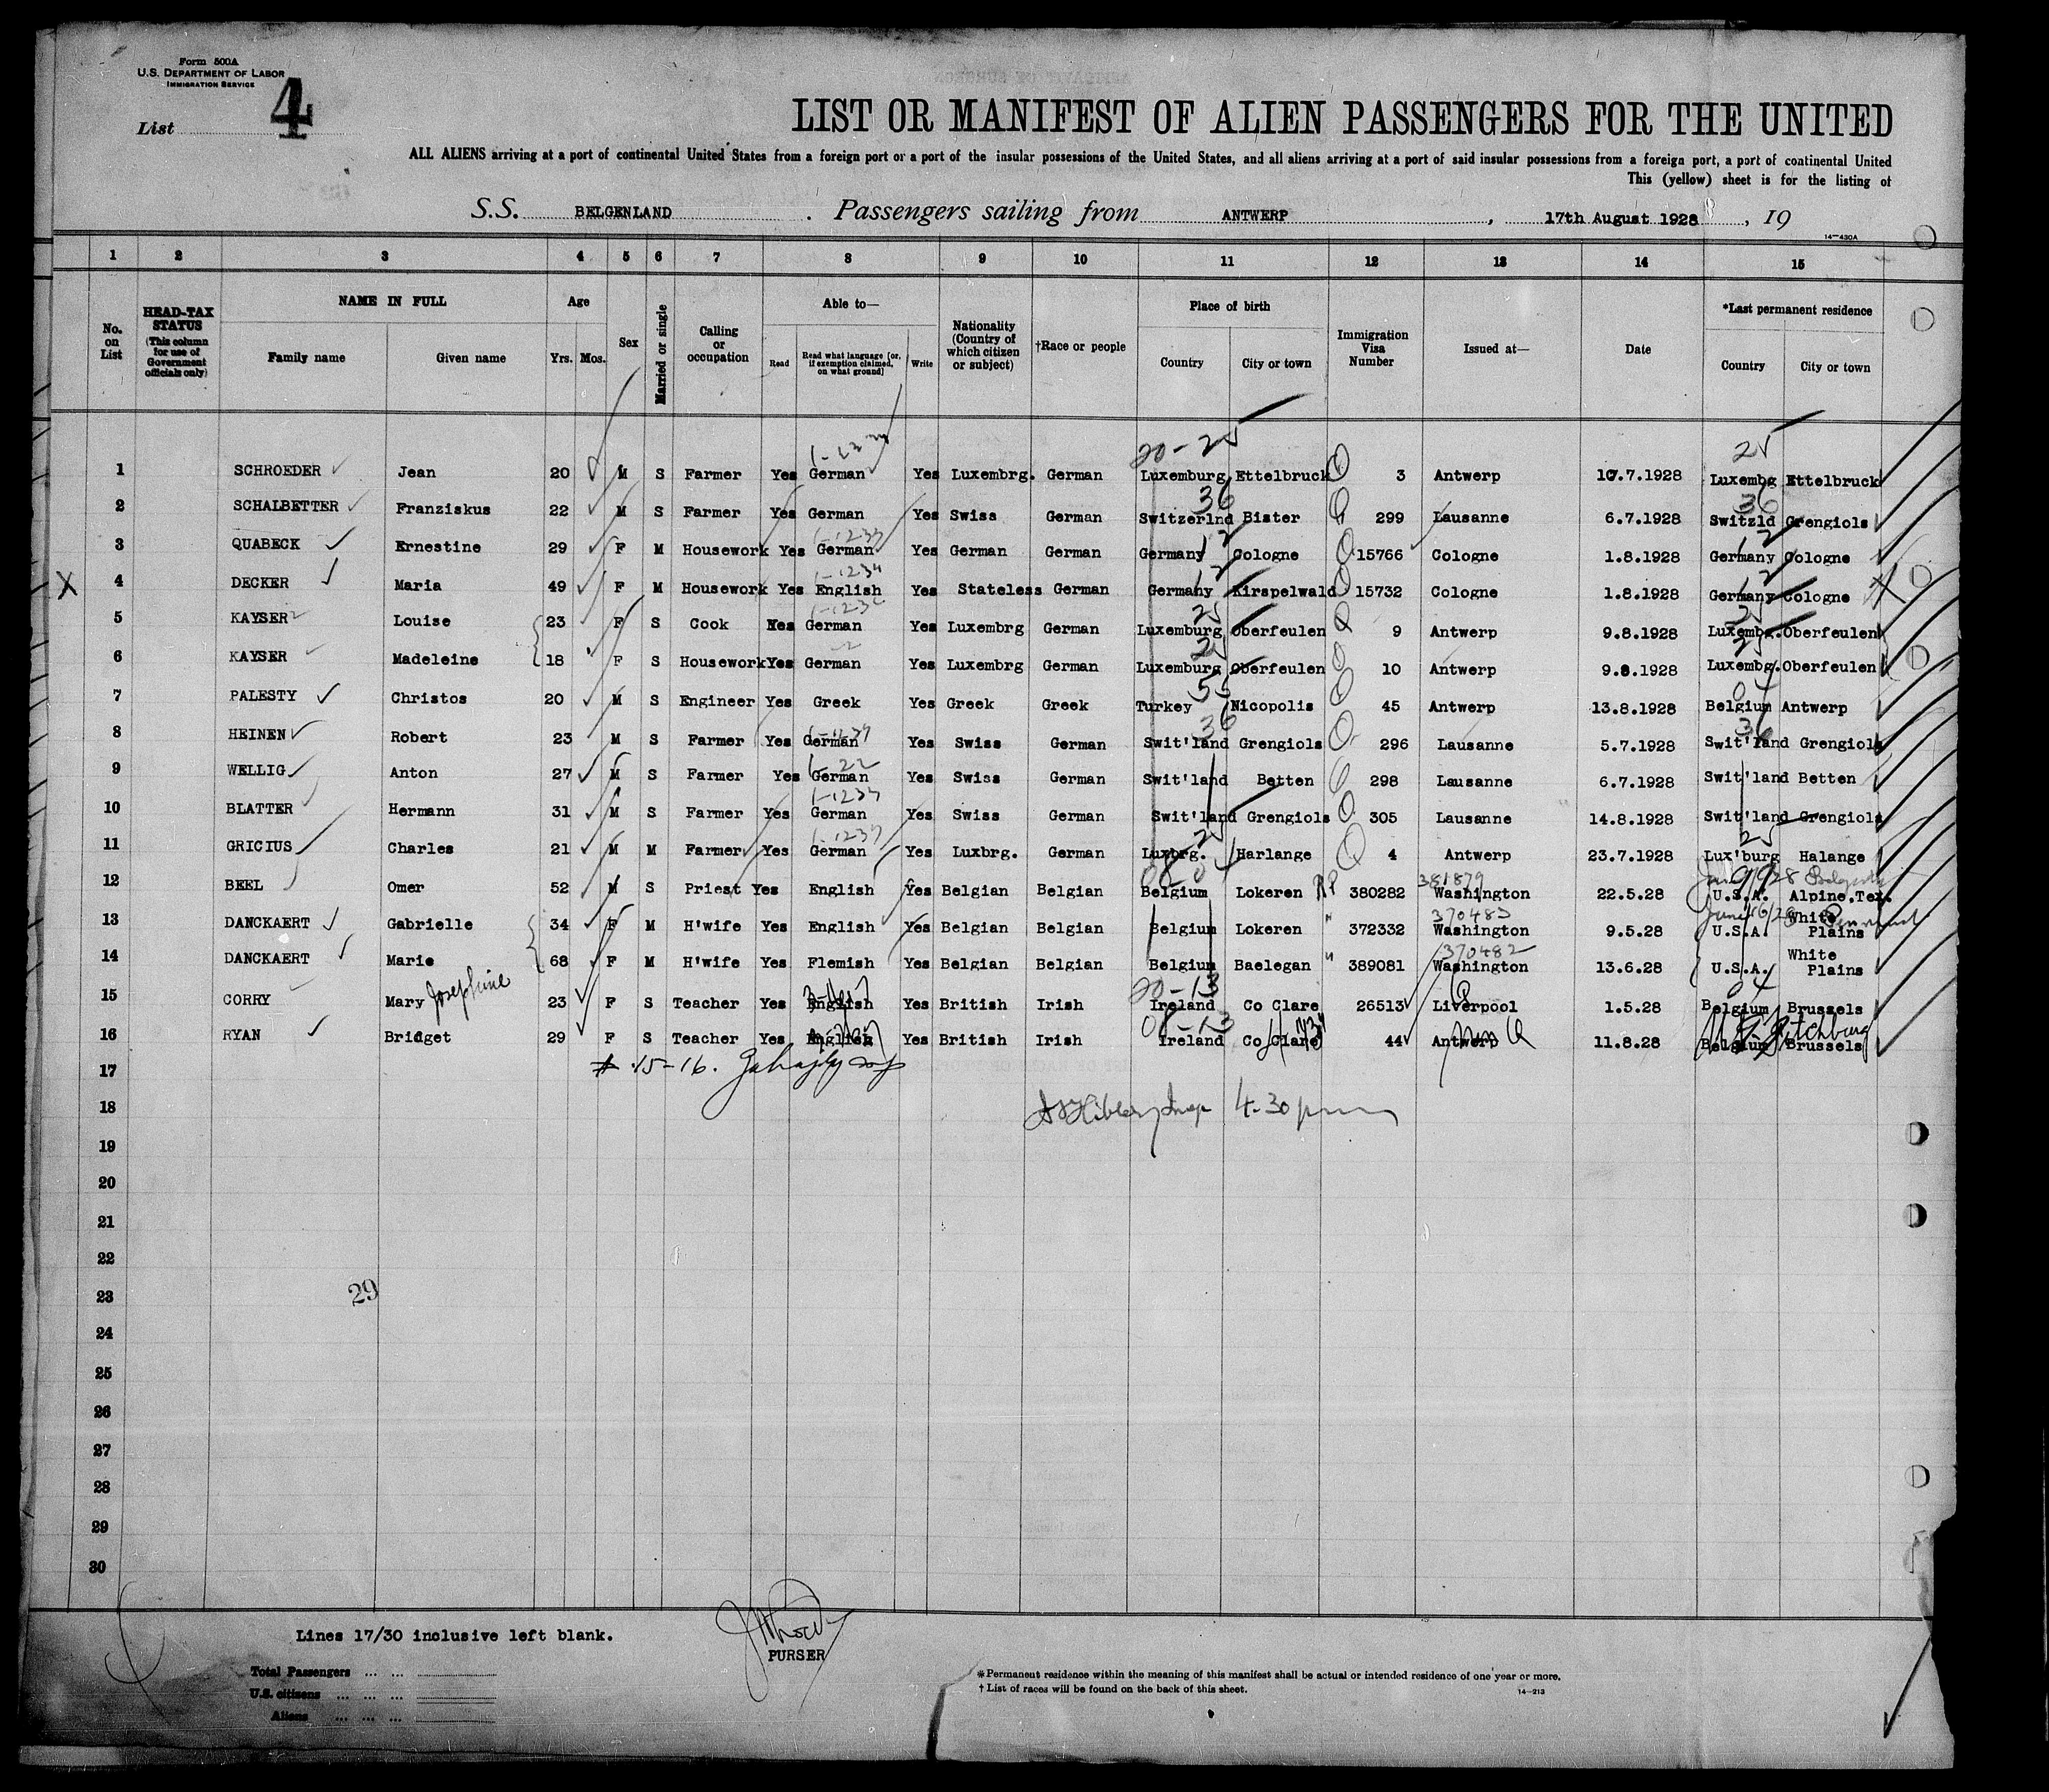 Form 500A
U.S. DEPARTMENT OF LABOR
IMMIGRATION SERVICE
List 4
LIST OR MANIFEST OF ALIEN PASSENGERS FOR THE UNITED
ALL ALIENS arriving at a port of continental United States from a foreign port or a port of the insular possessions of the United States, and all aliens arriving at a port of said insular possessions from a foreign port, a port of continental United
This (yellow) sheet is for the listing of
S.S. BELGENLAND . Passengers sailing from ANTWERP , 17th August 1928 , 19
14-430A
1 2 3 4 5 6 7 8 9 10 11 12 13 14 15
No. on List HEAD-TAX STATUS (This column for use of Government officials only) NAME IN FULL Family name Given name Age Yrs. Mos. Sex Married or single Calling or occupation Able to— Read Read what language [or, if exemption claimed, on what ground] Write Nationality (Country of which citizen or subject) †Race or people Place of birth Country City or town Immigration Visa Number Issued at— Date *Last permanent residence Country City or town
20-25 25
1 SCHROEDER Jean 20 M S Farmer Yes German Yes Luxembrg. German Luxemburg Ettelbruck 3 Antwerp 10.7.1928 Luxembg Ettelbruck
36 36
2 SCHALBETTER Franziskus 22 M S Farmer Yes German Yes Swiss German Switzerlnd Bister 299 Lausanne 6.7.1928 Switzld Grengiols
1-1234 12 12
3 QUABECK Ernestine 29 F M Housework Yes German Yes German German Germany Cologne 15766 Cologne 1.8.1928 Germany Cologne
1-1234 12 12
X 4 DECKER Maria 49 F M Housework Yes English Yes Stateless German Germany Kirspelwald 15732 Cologne 1.8.1928 Germany Cologne X
25 25
5 KAYSER Louise 23 F S Cook Yes German Yes Luxembrg German Luxemburg Oberfeulen 9 Antwerp 9.8.1928 Luxembg. Oberfeulen
25 25
6 KAYSER Madeleine 18 F S Housework Yes German Yes Luxembrg German Luxemburg Oberfeulen 10 Antwerp 9.8.1928 Luxembg. Oberfeulen
55 04
7 PALESTY Christos 20 M S Engineer Yes Greek Yes Greek Greek Turkey Nicopolis 45 Antwerp 13.8.1928 Belgium Antwerp
36 36
8 HEINEN Robert 23 M S Farmer Yes German Yes Swiss German Swit'land Grengiols 296 Lausanne 5.7.1928 Swit'land Grengiols
9 WELLIG Anton 27 M S Farmer Yes German Yes Swiss German Swit'land Betten 298 Lausanne 6.7.1928 Swit'land Betten
1-1234
10 BLATTER Hermann 31 M S Farmer Yes German Yes Swiss German Swit'land Grengiols 305 Lausanne 14.8.1928 Swit'land Grengiols
1-1234 25 25
11 GRICIUS Charles 21 M M Farmer Yes German Yes Luxbrg. German Luxbrg. Harlange 4 Antwerp 23.7.1928 Lux'burg Halange
381879
12 BEEL Omer 52 M S Priest Yes English Yes Belgian Belgian Belgium Lokeren RP 380282 Washington 22.5.28 U.S.A. Alpine.Tex.
370483
13 DANCKAERT Gabrielle 34 F M H'wife Yes English Yes Belgian Belgian Belgium Lokeren " 372332 Washington 9.5.28 U.S.A. White Plains
370482
14 DANCKAERT Marie 68 F M H'wife Yes Flemish Yes Belgian Belgian Belgium Baelegan " 389081 Washington 13.6.28 U.S.A. White Plains
20-13 04
15 CORRY Mary Josephine 23 F S Teacher Yes English Yes British Irish Ireland Co Clare 26513 Liverpool 1.5.28 Belgium Brussels
16 RYAN Bridget 29 F S Teacher Yes English Yes British Irish Ireland Co Clare 44 Antwerp 11.8.28 Belgium Brussels
17 # 15-16.
18 4.30 pm
19
20
21
22
23 29
24
25
26
27
28
29
30
Lines 17/30 inclusive left blank.
PURSER
Total Passengers ... ...
U.S. citizens ... ... ...
Aliens ... ... ...
*Permanent residence within the meaning of this manifest shall be actual or intended residence of one year or more.
† List of races will be found on the back of this sheet.
14-213